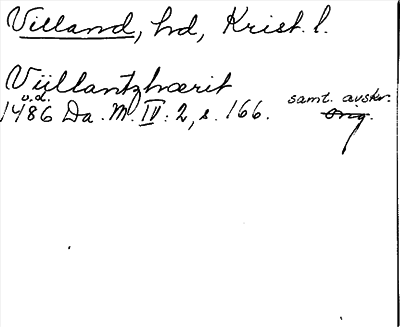 Villand, hd, Krist. l.
Viillantzhærit
u.d. samt. avskr.
1486 Da. M. IV: 2, s. 166. Orig.